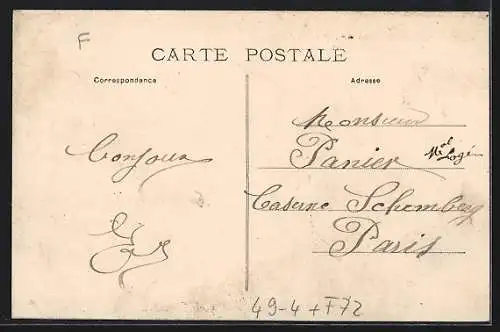 F
CARTE POSTALE
Correspondance
Adresse
Monsieur
Panier
Mal Logis
Caserne Schomberg
Paris
Bonjour
49-4+F72